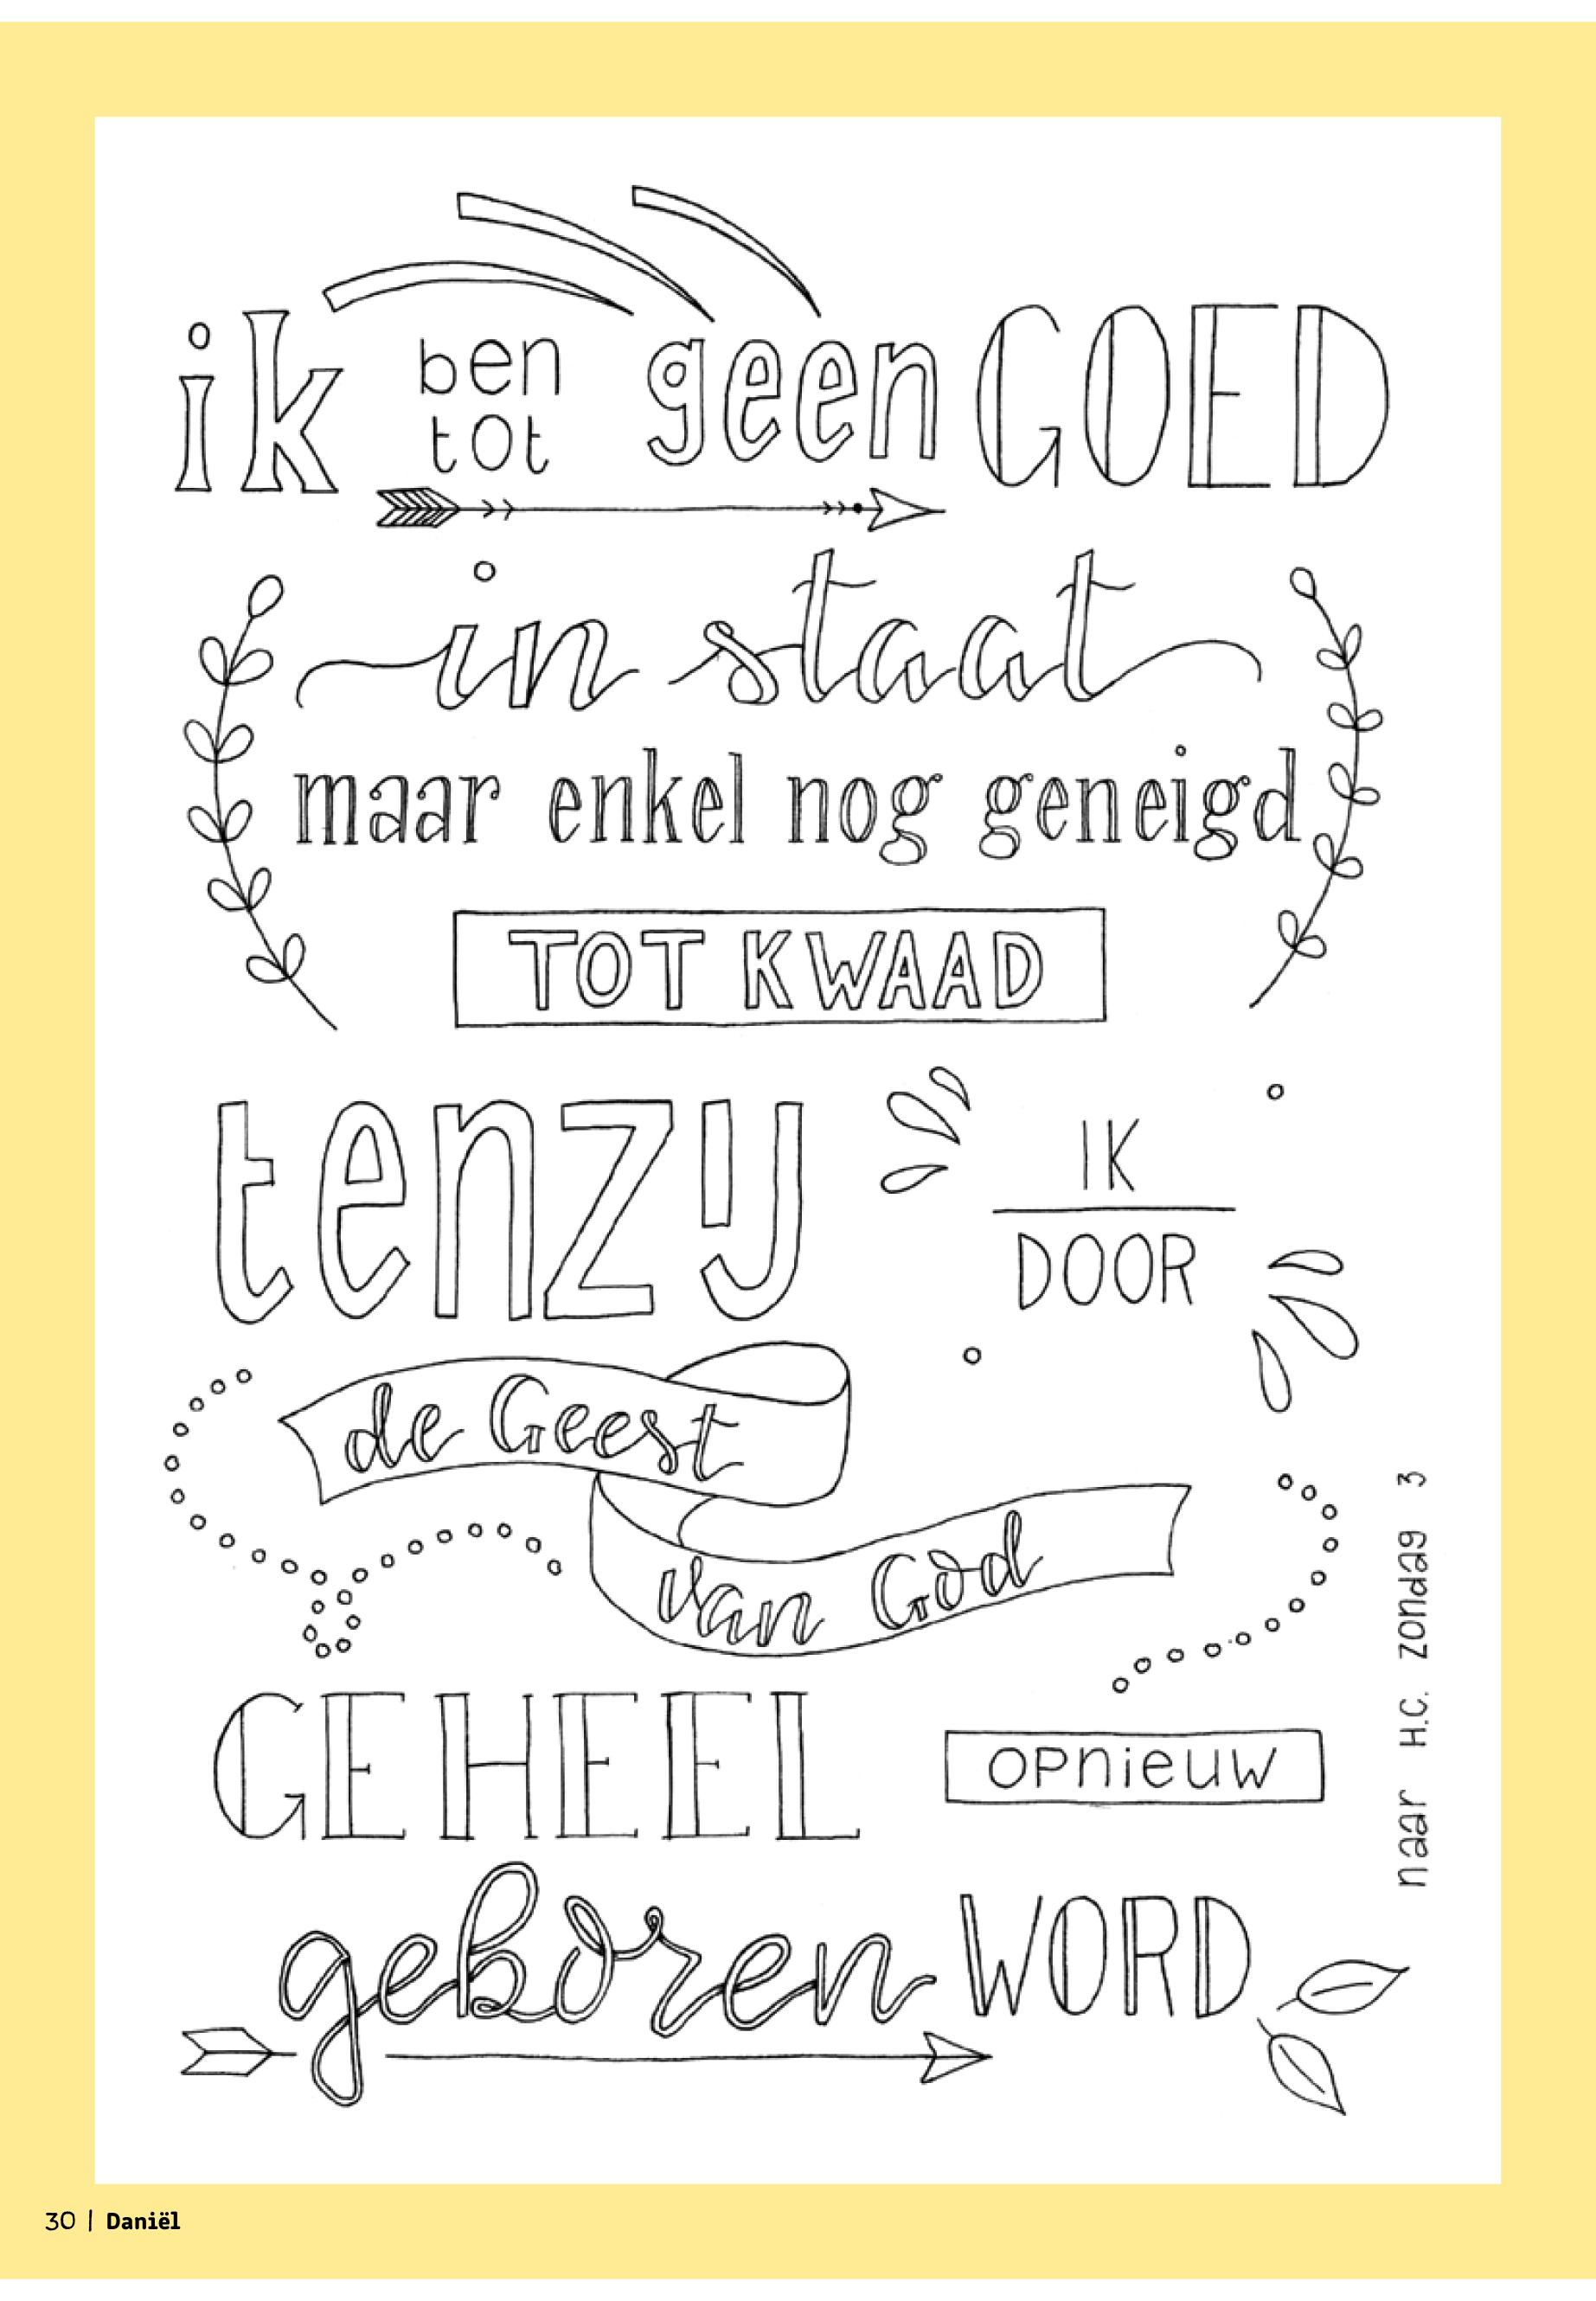 ik ben tot geen GOED
in staat
maar enkel nog geneigd
TOT KWAAD
tenzij IK DOOR
de Geest
van God
GEHEEL opnieuw
geboren WORD
naar H.C. zondag 3
30 | Daniël